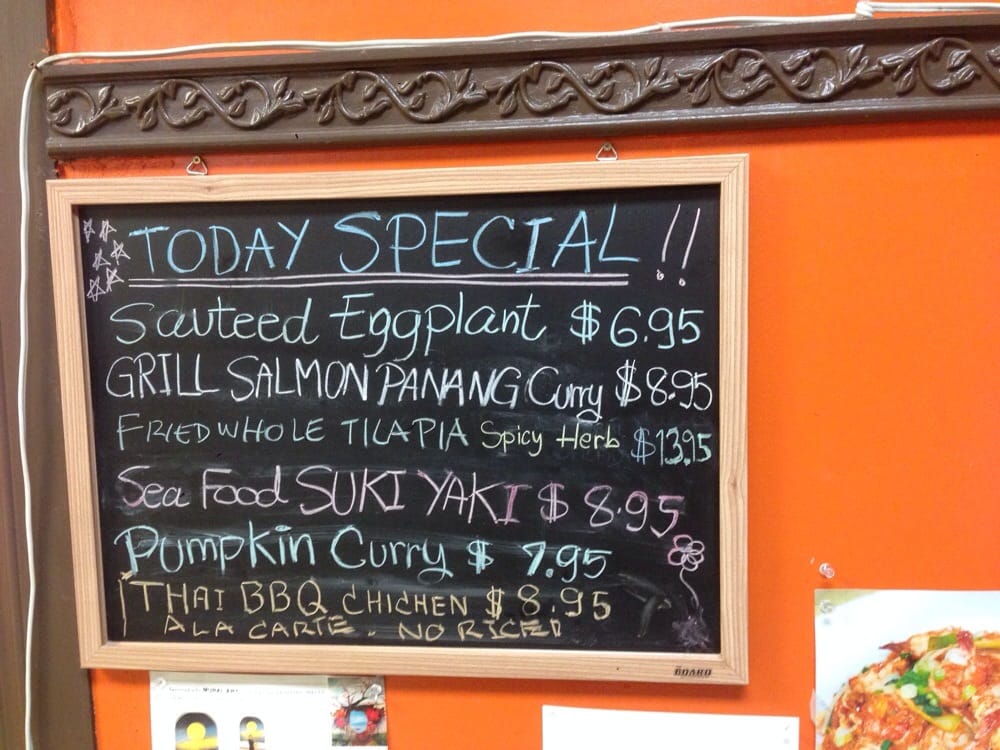 TODAY SPECIAL!!
Sauteed Eggplant $6.95
GRILL SALMON PANANG Curry $8.95
FRIED WHOLE TILAPIA Spicy Herb $13.95
Sea Food SUKI YAKI $8.95
Pumpkin Curry $7.95
THAI BBQ CHICHEN $8.95
A LA CARTE. NO RICE!
BOARD